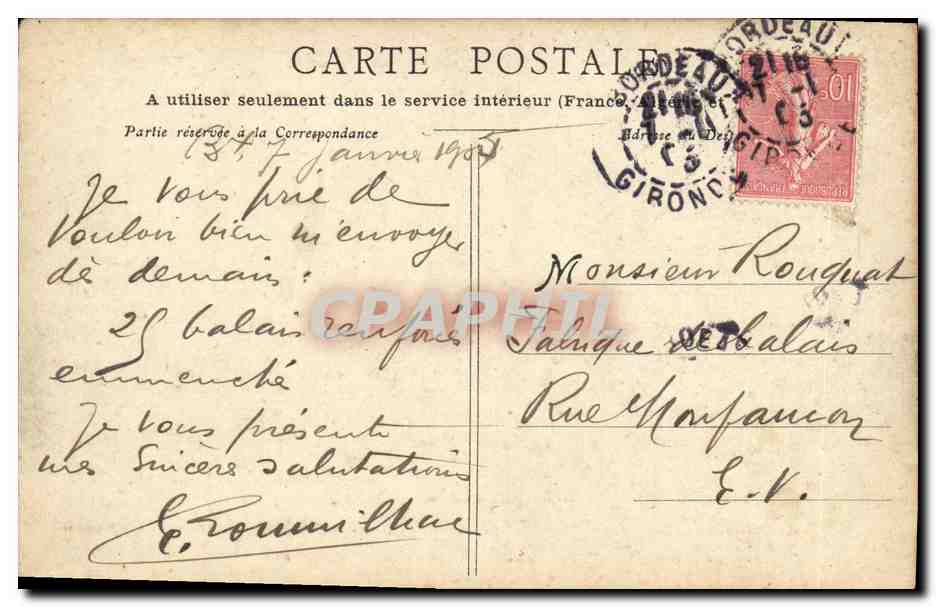 CARTE POSTALE
A utiliser seulement dans le service intérieur (France, Algérie et
Partie réservée à la Correspondance
Adresse du Des
7 Janvier
Je vous prie de
vouloir bien m'envoyer
dès demain :
25 balais renforcés
emmenché
Je vous présente
mes sincères salutations
Monsieur Rouquat
Fabrique de balais
Rue Monfaucon
E.V.
BORDEAUX
GIRONDE
21
BORDEAUX
GIRONDE
21 16
10
REPUBLIQUE FRANÇAISE
CPAPHIL